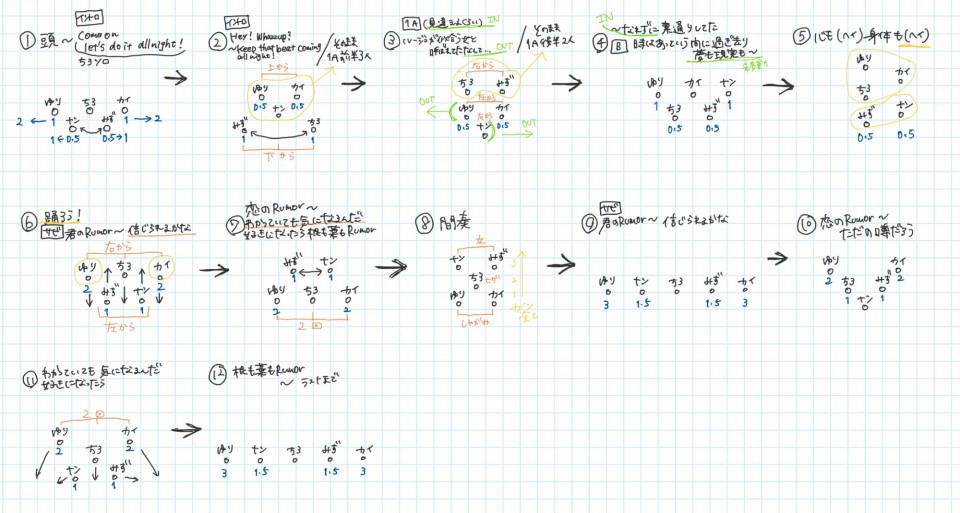 イントロ
① 頭〜 Come on
Let's do it all night!
ちろソロ
ゆり ちろ カイ
2 1 ナン みず 1 2
1←0.5 0.5→1
イントロ
② Hey! Whazzup?
〜Keep that beat coming
all night!
そのまま
1A前半3人
上から
ゆり ナン カイ
0.5 0.5
みず ちろ
1 1
下から
③ 1A (見違えるくらい) IN
OUT
そのまま
1A後半2人
右から
ちろ みず
左から
OUT ゆり 左から カイ
0.5 ナン 0.5
OUT
IN
④ 〜なれずに 素通りしてた
B 時はあっという間に過ぎ去り
夢も現実も〜
ゆり カイ ナン
1 1
ちろ みず
0.5 0.5
⑤ 心も(ヘイ)身体も(ヘイ)
ゆり
カイ
ちろ
みず ナン
0.5 0.5
⑥ 踊ろう!
サビ 君のRumor〜 信じられるかな
右から
ゆり ちろ カイ
2 みず ナン 2
1 1
左から
⑦ 恋のRumor〜
わかっていても気になるんだ
好きになったら 根も葉もRumor
みず ナン
1 1
ゆり ちろ カイ
2 2
2
⑧ 間奏
左
ナン みず
ちろ
ゆり カイ
しゃがみ
3
2
1
サビ
⑨ 君のRumor〜 信じられるかな
ゆり ナン ちろ みず カイ
3 1.5 1.5 3
⑩ 恋のRumor〜
ただの噂だろう
ゆり カイ
2 ちろ みず 2
1 ナン 1
⑪ わかっていても 気になるんだ
好きになったら
2
ゆり カイ
2 ちろ 2
ナン みず
1 1
⑫ 根も葉もRumor
〜 ラストまで
ゆり ナン ちろ みず カイ
3 1.5 1.5 3